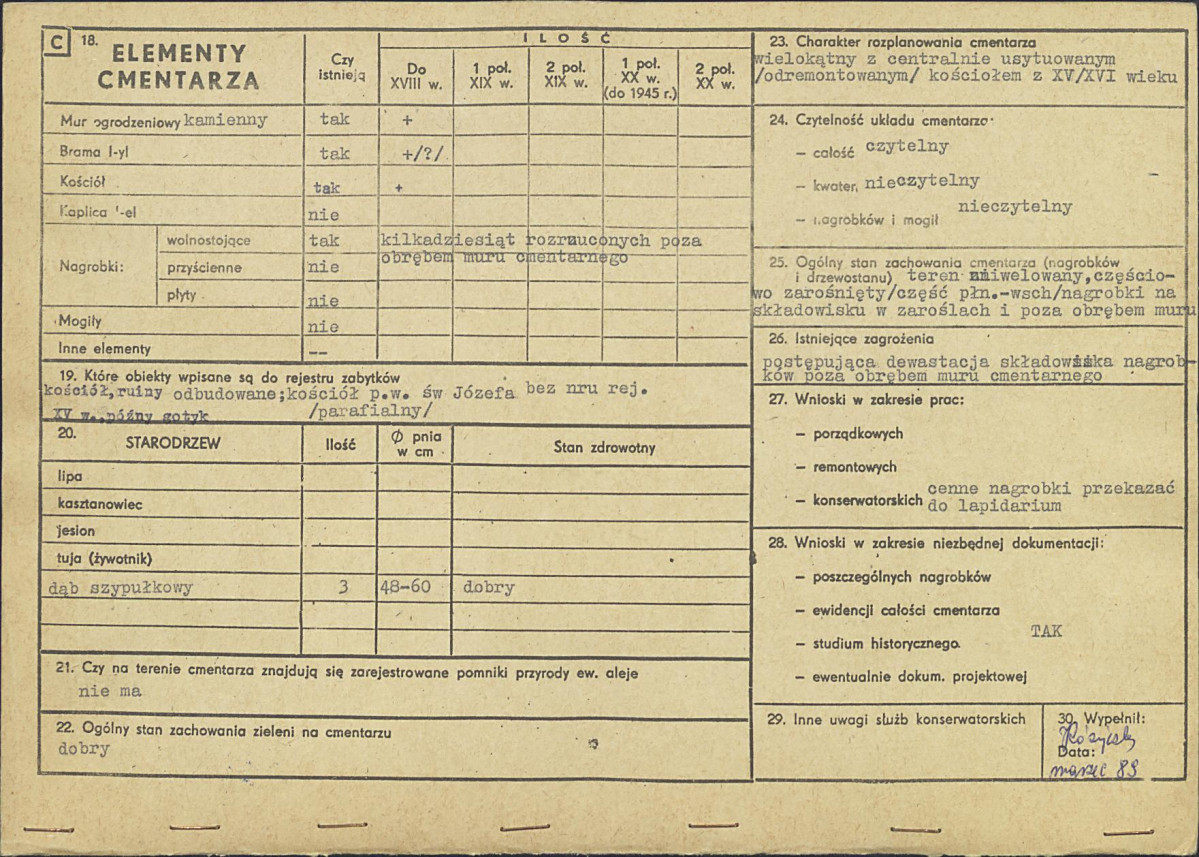 C 18. ELEMENTY CMENTARZA
Czy istnieją
ILOŚĆ
Do XVIII w.
1 poł. XIX w.
2 poł. XIX w.
1 poł. XX w. (do 1945 r.)
2 poł. XX w.
Mur ogrodzeniowy kamienny tak +
Brama l-yl tak +/?/
Kościół tak +
Kaplica -el nie
Nagrobki:
wolnostojące tak kilkadziesiąt rozrzuconych poza
obrębem muru cmentarnego
przyścienne nie
płyty nie
Mogiły nie
Inne elementy --
19. Które obiekty wpisane są do rejestru zabytków
kościół,ruiny odbudowane;kościół p.w. św Józefa bez nru rej.
XV w.,późny gotyk /parafialny/
20. STARODRZEW Ilość Ø pnia w cm Stan zdrowotny
lipa
kasztanowiec
jesion
tuja (żywotnik)
dąb szypułkowy 3 48-60 dobry
21. Czy na terenie cmentarza znajdują się zarejestrowane pomniki przyrody ew. aleje
nie ma
22. Ogólny stan zachowania zieleni na cmentarzu
dobry
23. Charakter rozplanowania cmentarza
wielokątny z centralnie usytuowanym
/odremontowanym/ kościołem z XV/XVI wieku
24. Czytelność układu cmentarza
- całość czytelny
- kwater, nieczytelny
- nagrobków i mogił nieczytelny
25. Ogólny stan zachowania cmentarza (nagrobków
i drzewostanu) teren zniwelowany,częścio-
wo zarośnięty/część płn.-wsch/nagrobki na
składowisku w zaroślach i poza obrębem muru
26. Istniejące zagrożenia
postępująca dewastacja składowiska nagrob-
ków poza obrębem muru cmentarnego
27. Wnioski w zakresie prac:
- porządkowych
- remontowych
- konserwatorskich cenne nagrobki przekazać
do lapidarium
28. Wnioski w zakresie niezbędnej dokumentacji:
- poszczególnych nagrobków
- ewidencji całości cmentarza
TAK
- studium historycznego
- ewentualnie dokum. projektowej
29. Inne uwagi służb konserwatorskich
30. Wypełnił:
Data:
marzec 89